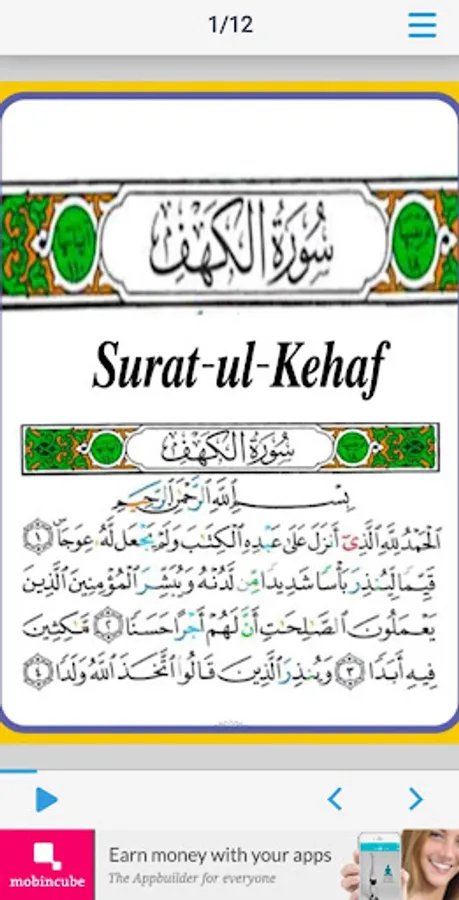 1/12
سُورَةُ الْكَهْفِ
Surat-ul-Kehaf
سُورَةُ الْكَهْفِ
بِسْمِ اللَّهِ الرَّحْمَٰنِ الرَّحِيمِ
الْحَمْدُ لِلَّهِ الَّذِىٓ أَنزَلَ عَلَىٰ عَبْدِهِ الْكِتَٰبَ وَلَمْ يَجْعَل لَّهُۥ عِوَجَاۜ ١
قَيِّمًا لِّيُنذِرَ بَأْسًا شَدِيدًا مِّن لَّدُنْهُ وَيُبَشِّرَ الْمُؤْمِنِينَ الَّذِينَ
يَعْمَلُونَ الصَّٰلِحَٰتِ أَنَّ لَهُمْ أَجْرًا حَسَنًا ٢ مَّٰكِثِينَ
فِيهِ أَبَدًا ٣ وَيُنذِرَ الَّذِينَ قَالُوا۟ اتَّخَذَ اللَّهُ وَلَدًا ٤
mobincube
Earn money with your apps
The Appbuilder for everyone